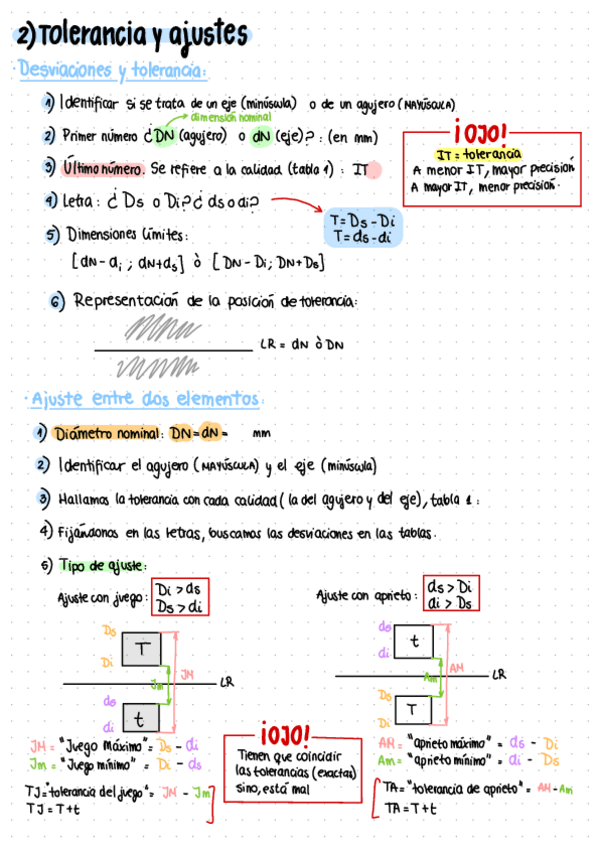 2) Tolerancia y ajustes
· Desviaciones y tolerancia:
1) Identificar si se trata de un eje (minúscula) o de un agujero (MAYÚSCULA)
dimensión nominal
2) Primer número ¿DN (agujero) o dN (eje)? : (en mm)
3) Último número. Se refiere a la calidad (tabla 1) : IT
¡OJO!
IT = tolerancia
A menor IT, mayor precisión
A mayor IT, menor precisión.
4) Letra: ¿ Ds o Di? ¿ ds o di?
T = Ds - Di
T = ds - di
5) Dimensiones límites:
[dN - di ; dN+ds] ò [DN - Di; DN+Ds]
6) Representación de la posición de tolerancia:
LR = dN ò DN
· Ajuste entre dos elementos:
1) Diámetro nominal: DN = dN = mm
2) Identificar el agujero (MAYÚSCULA) y el eje (minúscula)
3) Hallamos la tolerancia con cada calidad ( la del agujero y del eje), tabla 1 :
4) Fijándonos en las letras, buscamos las desviaciones en las tablas.
5) Tipo de ajuste:
Ajuste con juego :
Di > ds
Ds > di
Ajuste con aprieto :
ds > Di
di > Ds
Ds
T
Di
JM
Jm
LR
ds
t
di
ds
t
di
AM
Am
LR
Ds
T
Di
JM = "Juego Máximo" = Ds - di
Jm = "Juego mínimo" = Di - ds
TJ = "tolerancia del juego" = JM - Jm
TJ = T + t
¡OJO!
Tienen que coincidir
las tolerancias (exactas)
sino, está mal
AM = "aprieto máximo" = ds - Di
Am = "aprieto mínimo" = di - Ds
TA = "tolerancia de aprieto" = AM - Am
TA = T + t